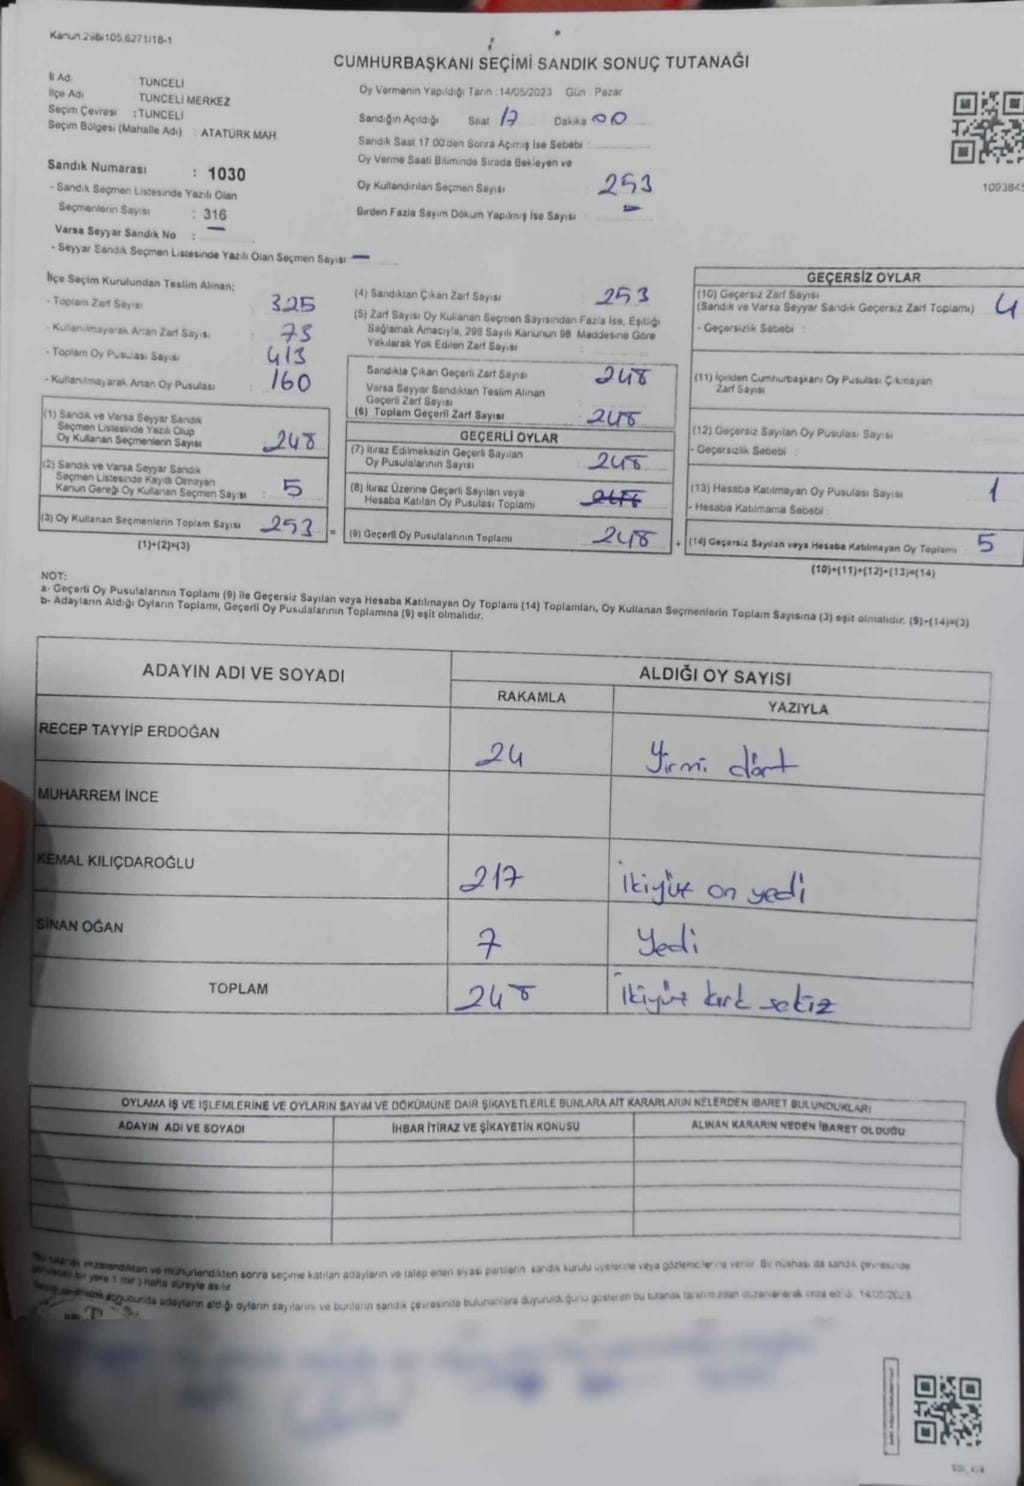 Kanun 298/105,6271/18-1
CUMHURBAŞKANI SEÇİMİ SANDIK SONUÇ TUTANAĞI
İl Adı TUNCELİ
İlçe Adı TUNCELİ MERKEZ
Seçim Çevresi : TUNCELİ
Seçim Bölgesi (Mahalle Adı) : ATATÜRK MAH.
Sandık Numarası : 1030
- Sandık Seçmen Listesinde Yazılı Olan
Seçmenlerin Sayısı : 316
Varsa Seyyar Sandık No : —
- Seyyar Sandık Seçmen Listesinde Yazılı Olan Seçmen Sayısı —
Oy Vermenin Yapıldığı Tarih : 14/05/2023 Gün : Pazar
Sandığın Açıldığı Saat 17 Dakika 00
Sandık Saat 17.00'den Sonra Açımış İse Sebebi :
Oy Verme Saati Bitiminde Sırada Bekleyen ve
Oy Kullandırılan Seçmen Sayısı 253
Birden Fazla Sayım Döküm Yapılmış İse Sayısı : —
109384
İlçe Seçim Kurulundan Teslim Alınan;
- Toplam Zarf Sayısı : 325
- Kullanılmayarak Artan Zarf Sayısı : 73
- Toplam Oy Pusulası Sayısı 413
- Kullanılmayarak Artan Oy Pusulası : 160
(1) Sandık ve Varsa Seyyar Sandık
Seçmen Listesinde Yazılı Olup
Oy Kullanan Seçmenlerin Sayısı 248
(2) Sandık ve Varsa Seyyar Sandık
Seçmen Listesinde Kayıtlı Olmayan
Kanun Gereği Oy Kullanan Seçmen Sayısı : 5
(3) Oy Kullanan Seçmenlerin Toplam Sayısı 253 =
(1)+(2)=(3)
(4) Sandıktan Çıkan Zarf Sayısı 253
(5) Zarf Sayısı Oy Kullanan Seçmen Sayısından Fazla İse, Eşitliği
Sağlamak Amacıyla, 298 Sayılı Kanunun 98. Maddesine Göre
Yakılarak Yok Edilen Zarf Sayısı :
Sandıkta Çıkan Geçerli Zarf Sayısı 248
Varsa Seyyar Sandıktan Teslim Alınan
Geçerli Zarf Sayısı :
(6) Toplam Geçerli Zarf Sayısı 248
GEÇERLİ OYLAR
(7) İtiraz Edilmeksizin Geçerli Sayılan
Oy Pusulalarının Sayısı : 248
(8) İtiraz Üzerine Geçerli Sayılan veya
Hesaba Katılan Oy Pusulası Toplamı
(9) Geçerli Oy Pusulalarının Toplamı : 248 +
GEÇERSİZ OYLAR
(10) Geçersiz Zarf Sayısı
(Sandık ve Varsa Seyyar Sandık Geçersiz Zarf Toplamı) : 4
- Geçersizlik Sebebi :
(11) İçinden Cumhurbaşkanı Oy Pusulası Çıkmayan
Zarf Sayısı
(12) Geçersiz Sayılan Oy Pusulası Sayısı :
- Geçersizlik Sebebi :
(13) Hesaba Katılmayan Oy Pusulası Sayısı : 1
- Hesaba Katılmama Sebebi :
(14) Geçersiz Sayılan veya Hesaba Katılmayan Oy Toplamı : 5
(10)+(11)+(12)+(13)=(14)
NOT:
a- Geçerli Oy Pusulalarının Toplamı (9) ile Geçersiz Sayılan veya Hesaba Katılmayan Oy Toplamı (14) Toplamları, Oy Kullanan Seçmenlerin Toplam Sayısına (3) eşit olmalıdır. (9)+(14)=(3)
b- Adayların Aldığı Oyların Toplamı, Geçerli Oy Pusulalarının Toplamına (9) eşit olmalıdır.
ADAYIN ADI VE SOYADI ALDIĞI OY SAYISI
RAKAMLA YAZIYLA
RECEP TAYYİP ERDOĞAN 24 Yirmi dört
MUHARREM İNCE
KEMAL KILIÇDAROĞLU 217 İkiyüz on yedi
SİNAN OĞAN 7 Yedi
TOPLAM 248 İkiyüz kırk sekiz
OYLAMA İŞ VE İŞLEMLERİNE VE OYLARIN SAYIM VE DÖKÜMÜNE DAİR ŞİKAYETLERLE BUNLARA AİT KARARLARIN NELERDEN İBARET BULUNDUKLARI
ADAYIN ADI VE SOYADI İHBAR İTİRAZ VE ŞİKAYETİN KONUSU ALINAN KARARIN NEDEN İBARET OLDUĞU
Bu tutanak imzalandıktan ve mühürlendikten sonra seçime katılan adayların ve talep eden siyasi partilerin sandık kurulu üyelerine veya gözlemcilerine verilir. Bir nüshası da sandık çevresinde
bir yere 1 (bir) hafta süreyle asılır.
sonucunda adayların aldığı oyların sayılarını ve bunların sandık çevresinde bulunanlara duyurulduğunu gösteren bu tutanak tarafımızdan düzenlenerek imza edildi. 14/05/2023